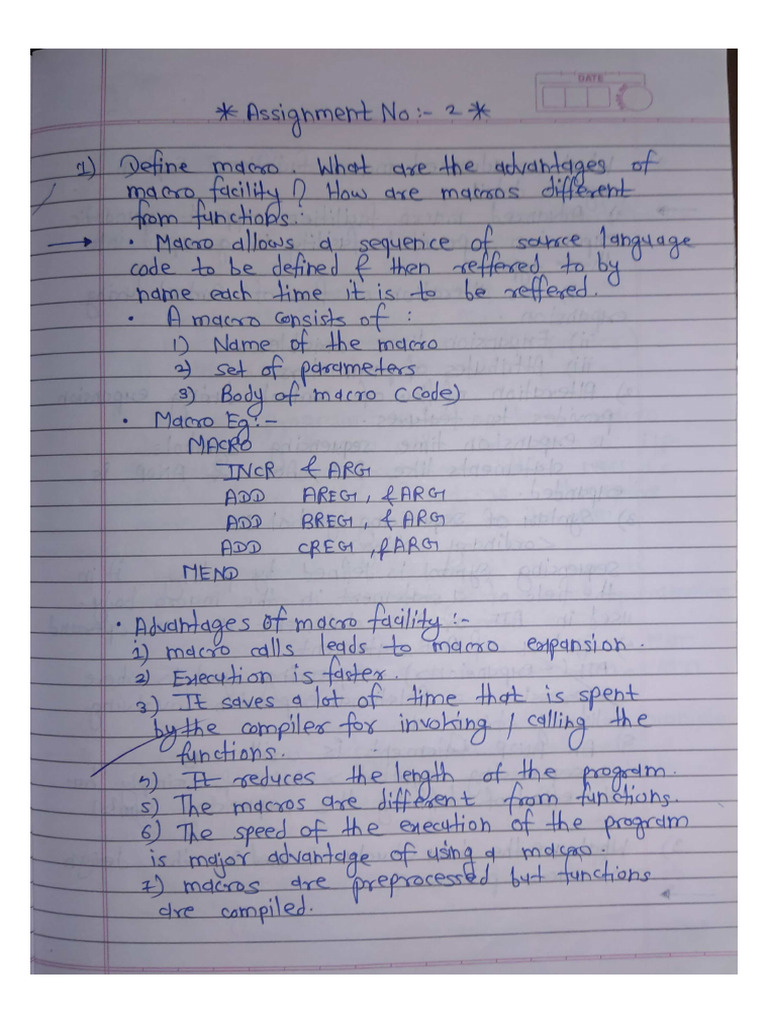 DATE
* Assignment No :- 2 *
1) Define macro. What are the advantages of
macro facility? How are macros different
from functions.
→ • Macro allows a sequence of source language
code to be defined & then reffered to by
name each time it is to be reffered.
• A macro consists of :
1) Name of the macro
2) set of parameters
3) Body of macro (Code)
• Macro Eg:-
MACRO
INCR &ARG
ADD AREG, &ARG
ADD BREG, &ARG
ADD CREG, &ARG
MEND
• Advantages of macro facility :-
1) macro calls leads to macro expansion.
2) Execution is faster.
3) It saves a lot of time that is spent
by the compiler for invoking / calling the
functions.
4) It reduces the length of the program.
5) The macros are different from functions.
6) The speed of the execution of the program
is major advantage of using a macro.
7) macros are preprocessed but functions
are compiled.